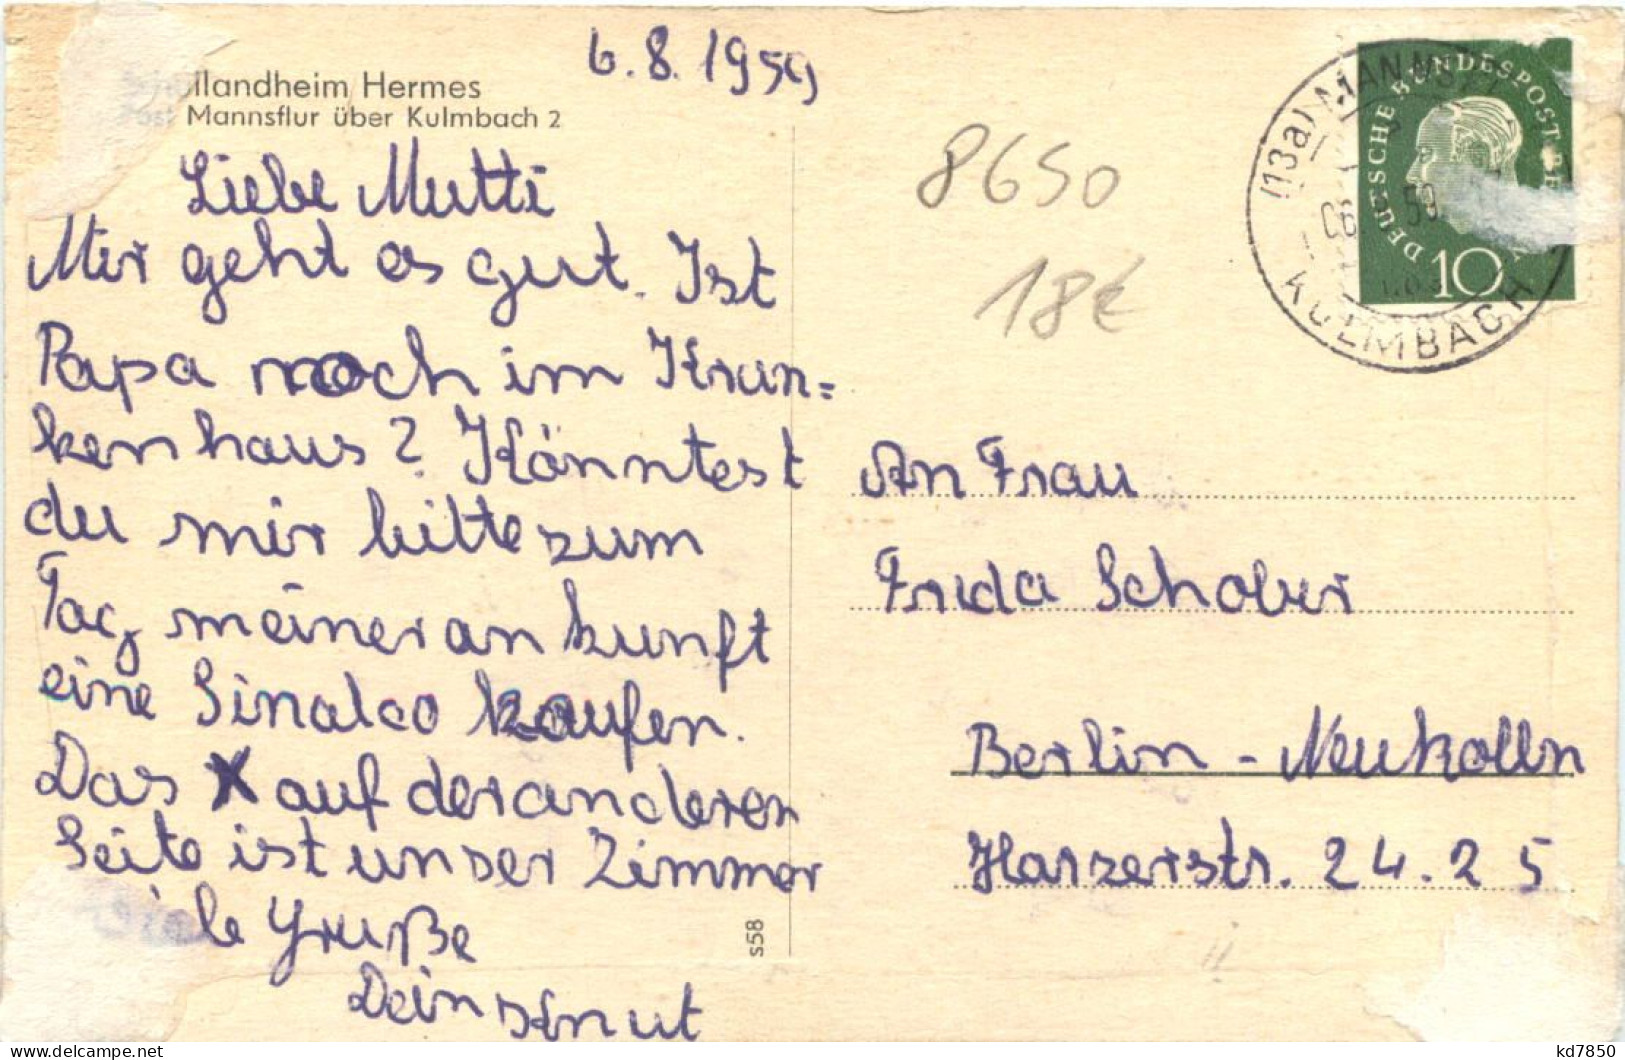 6.8.1959
llandheim Hermes
Post Mannsflur über Kulmbach 2
Liebe Mutti
Mir geht es gut. Ist
Papa noch im Kran=
kenhaus? Könntest
du mir bitte zum
Tag meiner an kunft
eine Sinalco kaufen.
Das X auf der anderen
Seite ist unser Zimmer
le Gruße
Dein Knut
s58
8650
18€
(13a) MANNSFL
06. 59
KULMBACH
DEUTSCHE BUNDESPOST BE
10
An Frau
Frida Schober
Berlin - Neukölln
Harzerstr. 24.25
kd7850